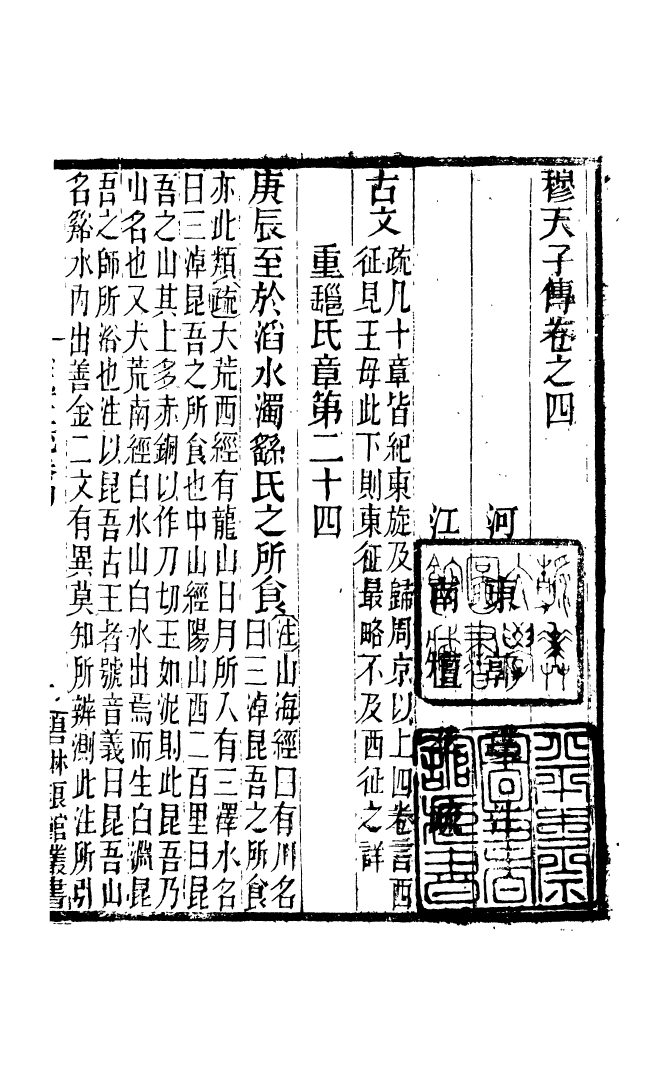 穆天子傳卷之四
河東郭璞注
江南檀萃疏
古文
疏凡十章皆紀東旋及歸周京以上四卷言西
征見王母此下則東征最略不及西征之詳
重𨞬氏章第二十四
庚辰至於滔水濁繇氏之所食
注山海經曰有川名
曰三淖昆吾之所食
亦此類疏大荒西經有龍山日月所入有三澤水名
曰三淖昆吾之所食也中山經陽山西二百里曰昆
吾之山其上多赤銅以作刀切玉如泥則此昆吾乃
山名也又大荒南經白水山白水出焉而生白淵昆
吾之師所浴也注以昆吾古王者號音義曰昆吾山
名谿水內出善金二文有異莫知所辨測此注所引